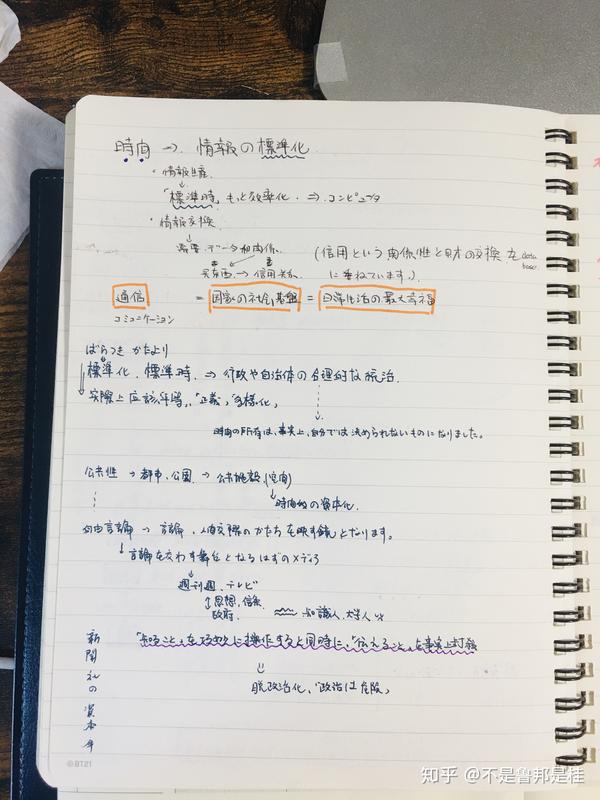 時間 → 情報の標準化
・情報生産
「標準時」もっと効率化 ⇒ コンピュータ
・情報交換
需要 データ和関係
买东西 → 信用关系
(信用という関係性と財の交換を data base
に重ねています。)
通信 = 国家の社会基盤 = 日常生活の最大幸福
コミュニケーション
ばらつき かたより
標準化、標準時 → 行政や自治体の合理的な統治
実際上应该年等,「正義」多様化,
時間の所有は、事実上、自分では決められないものになりました。
公共性 → 都市、公園 → 公共施設(空間)
時間的の資本化
自由言論 → 言論、人間交際のかたちを映す鏡となります。
言論を交わす舞台となるはずのメディア
週刊週、テレビ
思想、信条
政府
知識人、大学人
「知ること」を巧妙に操作すると同時に、「伝えること」を事実上封鎖
脱政治化、"政治は危険"
新聞社の資本
©BT21
知乎 @不是鲁邦是桂